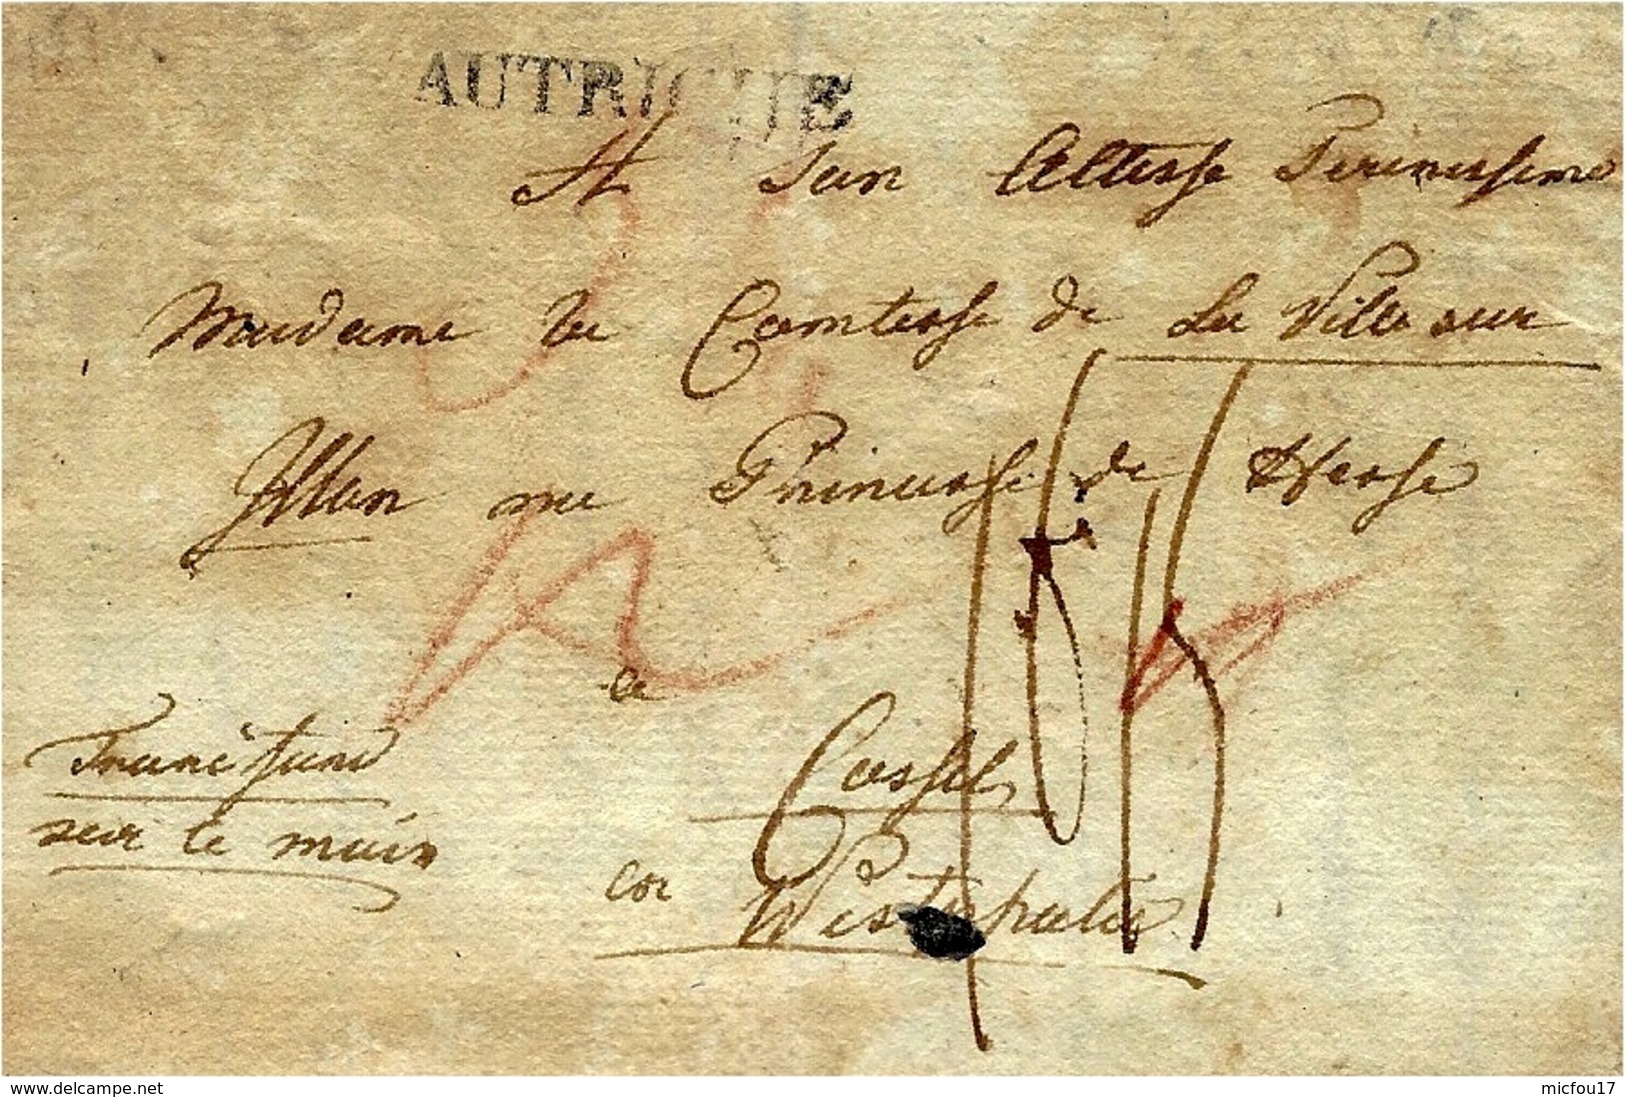 AUTRICHE
A Son Altesse Serenissime
Madame la Comtesse de La Ville sur
Illon nee Princesse de Hesse
a
Cassel
en Westphalie
sur le main
www.delcampe.net
micfou17